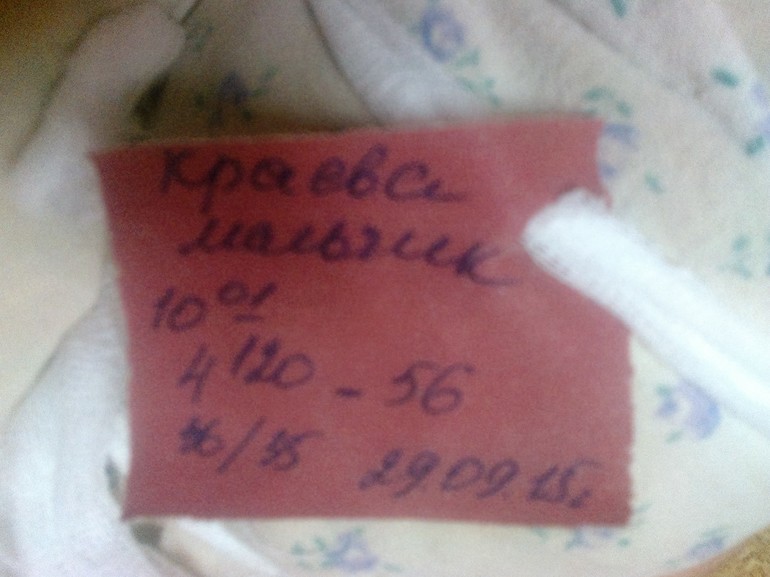 Краева
мальчик
10⁰¹
4¹²⁰ - 56
36/35 29.09.15г